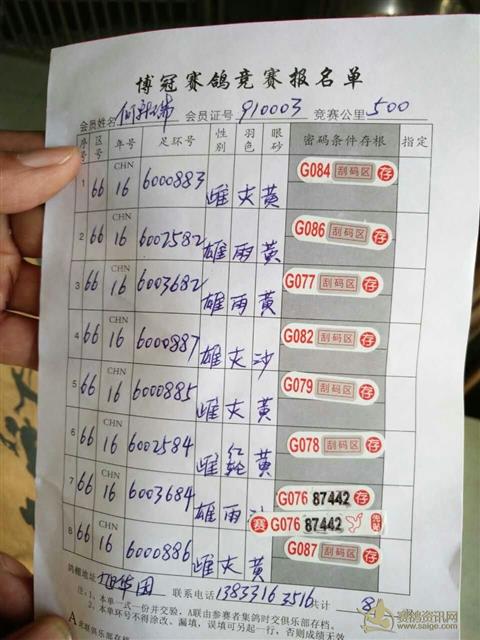 博冠赛鸽竞赛报名单
会员姓名 会员证号 910003 竞赛公里 500
序号 区号 年号 足环号 性别 羽色 眼砂 密码条件存根 指定
1 66 CHN 16 6000883 雌 灰 黄 G084 刮码区 存
2 66 CHN 16 6002582 雄 雨 黄 G086 刮码区 存
3 66 CHN 16 6003682 雄 雨 黄 G077 刮码区 存
4 66 CHN 16 6000887 雄 灰 沙 G082 刮码区 存
5 66 CHN 16 6000885 雌 灰 黄 G079 刮码区 存
6 66 CHN 16 6002584 雌 红轮 黄 G078 刮码区 存
7 66 CHN 16 6003684 雄 雨 沙 G076 87442 存
赛 G076 87442
8 66 CHN 16 6000886 雌 灰 黄 G087 刮码区 存
鸽棚地址 联系电话 13833163516 共计 8
注:1、本单一式一份并交验,A联由参赛者集鸽时交俱乐部存档。
2、本单不得涂改、漏填,误填可另起一行,否则成绩无效
A 此联俱乐部存档
赛鸽资讯网
www.saige.com